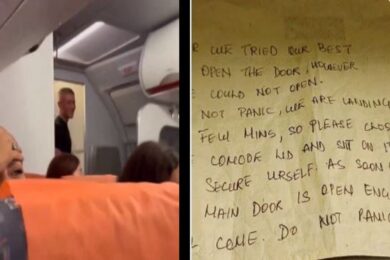 R WE TRIED OUR BEST
OPEN THE DOOR, HOWEVER
COULD NOT OPEN.
NOT PANIC, WE ARE LANDING
FEW MINS, SO PLEASE CLOS
COMODE LID AND SIT ON
SECURE URSELF. AS SOON
MAIN DOOR IS OPEN ENG
COME. DO NOT PANIC